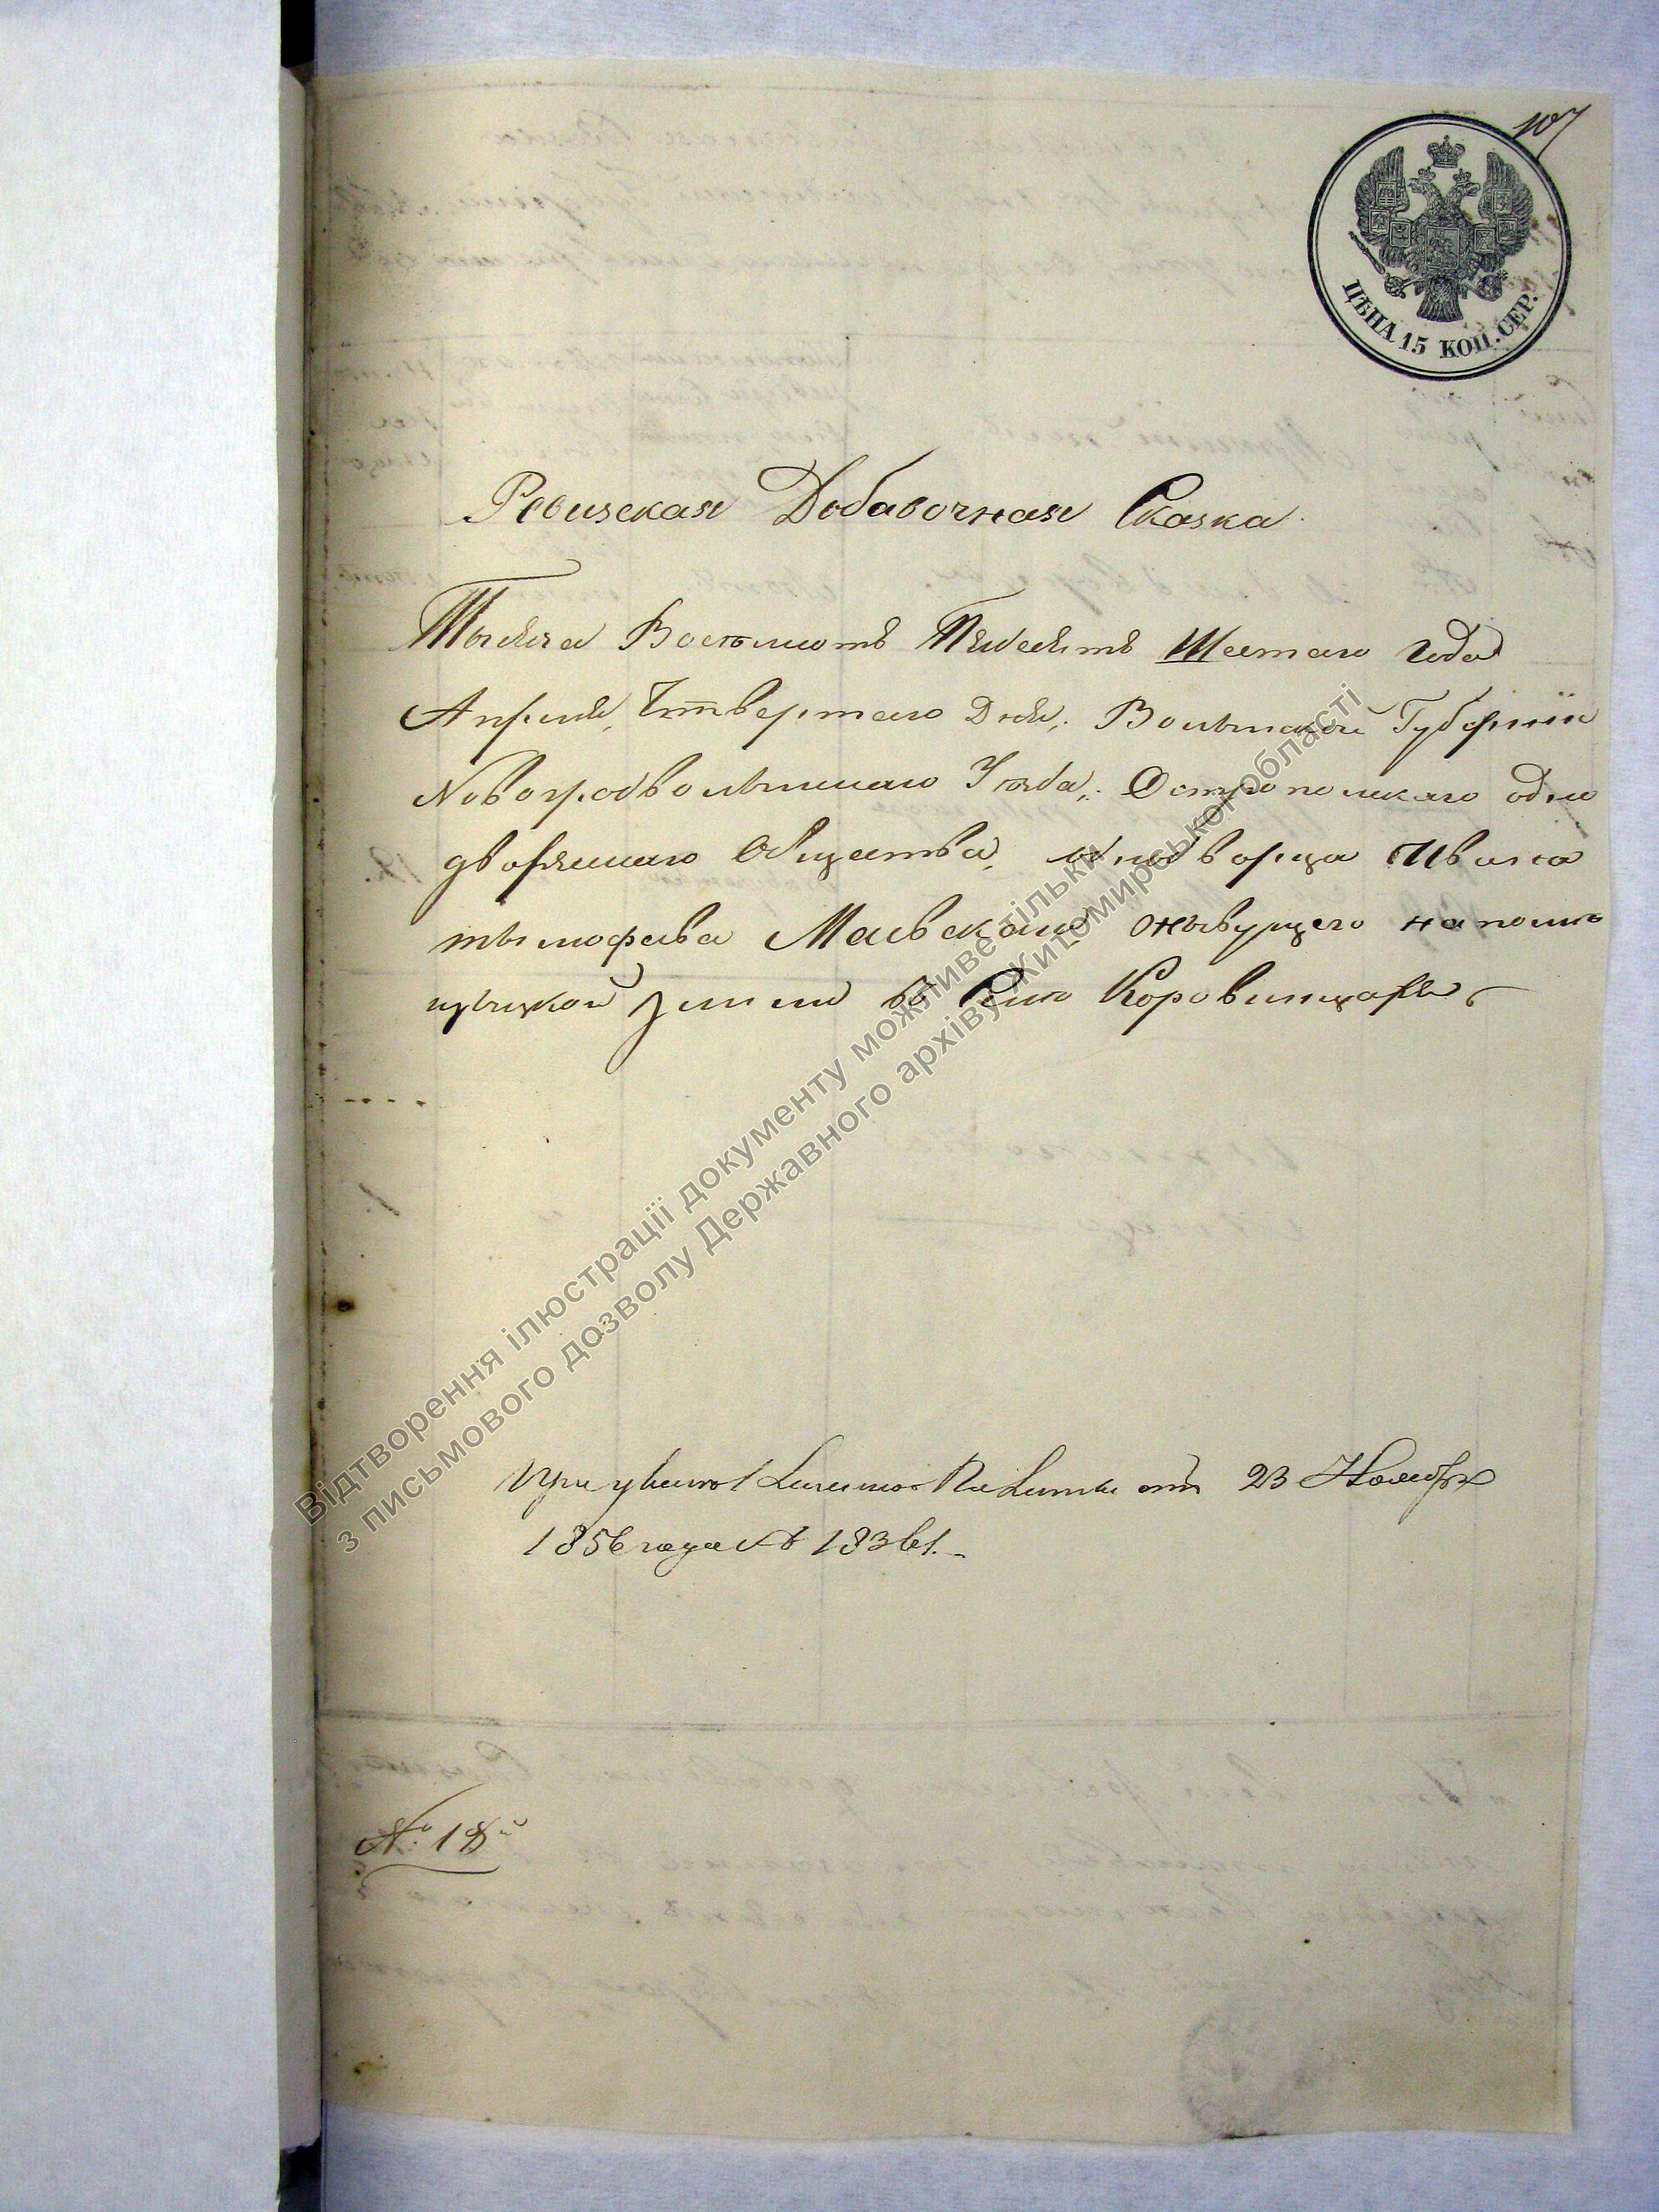 107
ЦѢНА 15 КОП. СЕР.
Ревизская Добавочная Сказка.
Тысяча Восемьсотъ Пядесятъ Шестаго Года
Апреля, Четвертаго Дня, Волынской Губернiи
Новоградволынскаго Уезда, Остропольскаго одно
дворческаго Общества, однодворца Ивана
тымофеева Маевскаго жывущего на помѣ
щыцкой земли въ Селе Коровинцахъ
При указе Казенной Палаты отъ 23 Ноября
1856 года №
№ 18й
Відтворення ілюстрації документу можливе тільки
з письмового дозволу Державного архіву Житомирської області